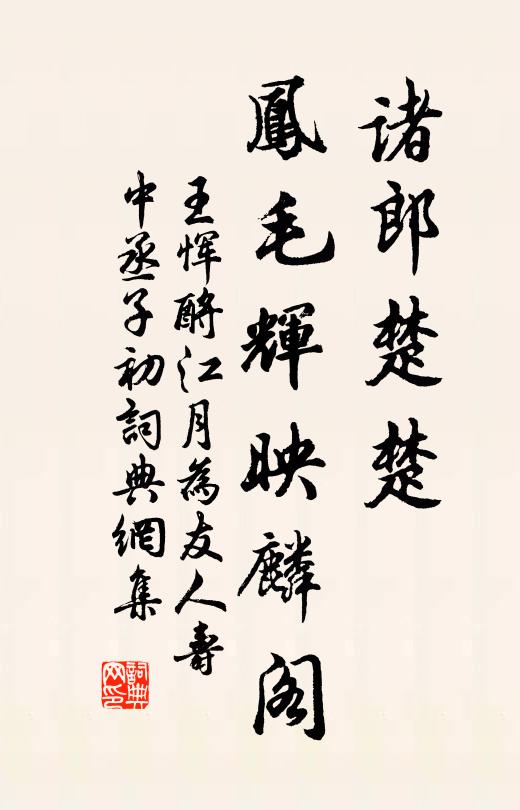 诸郎楚楚
鳳毛輝映麟阁
王恽酹江月為友人壽
中丞子初詞典網集
詞典网印